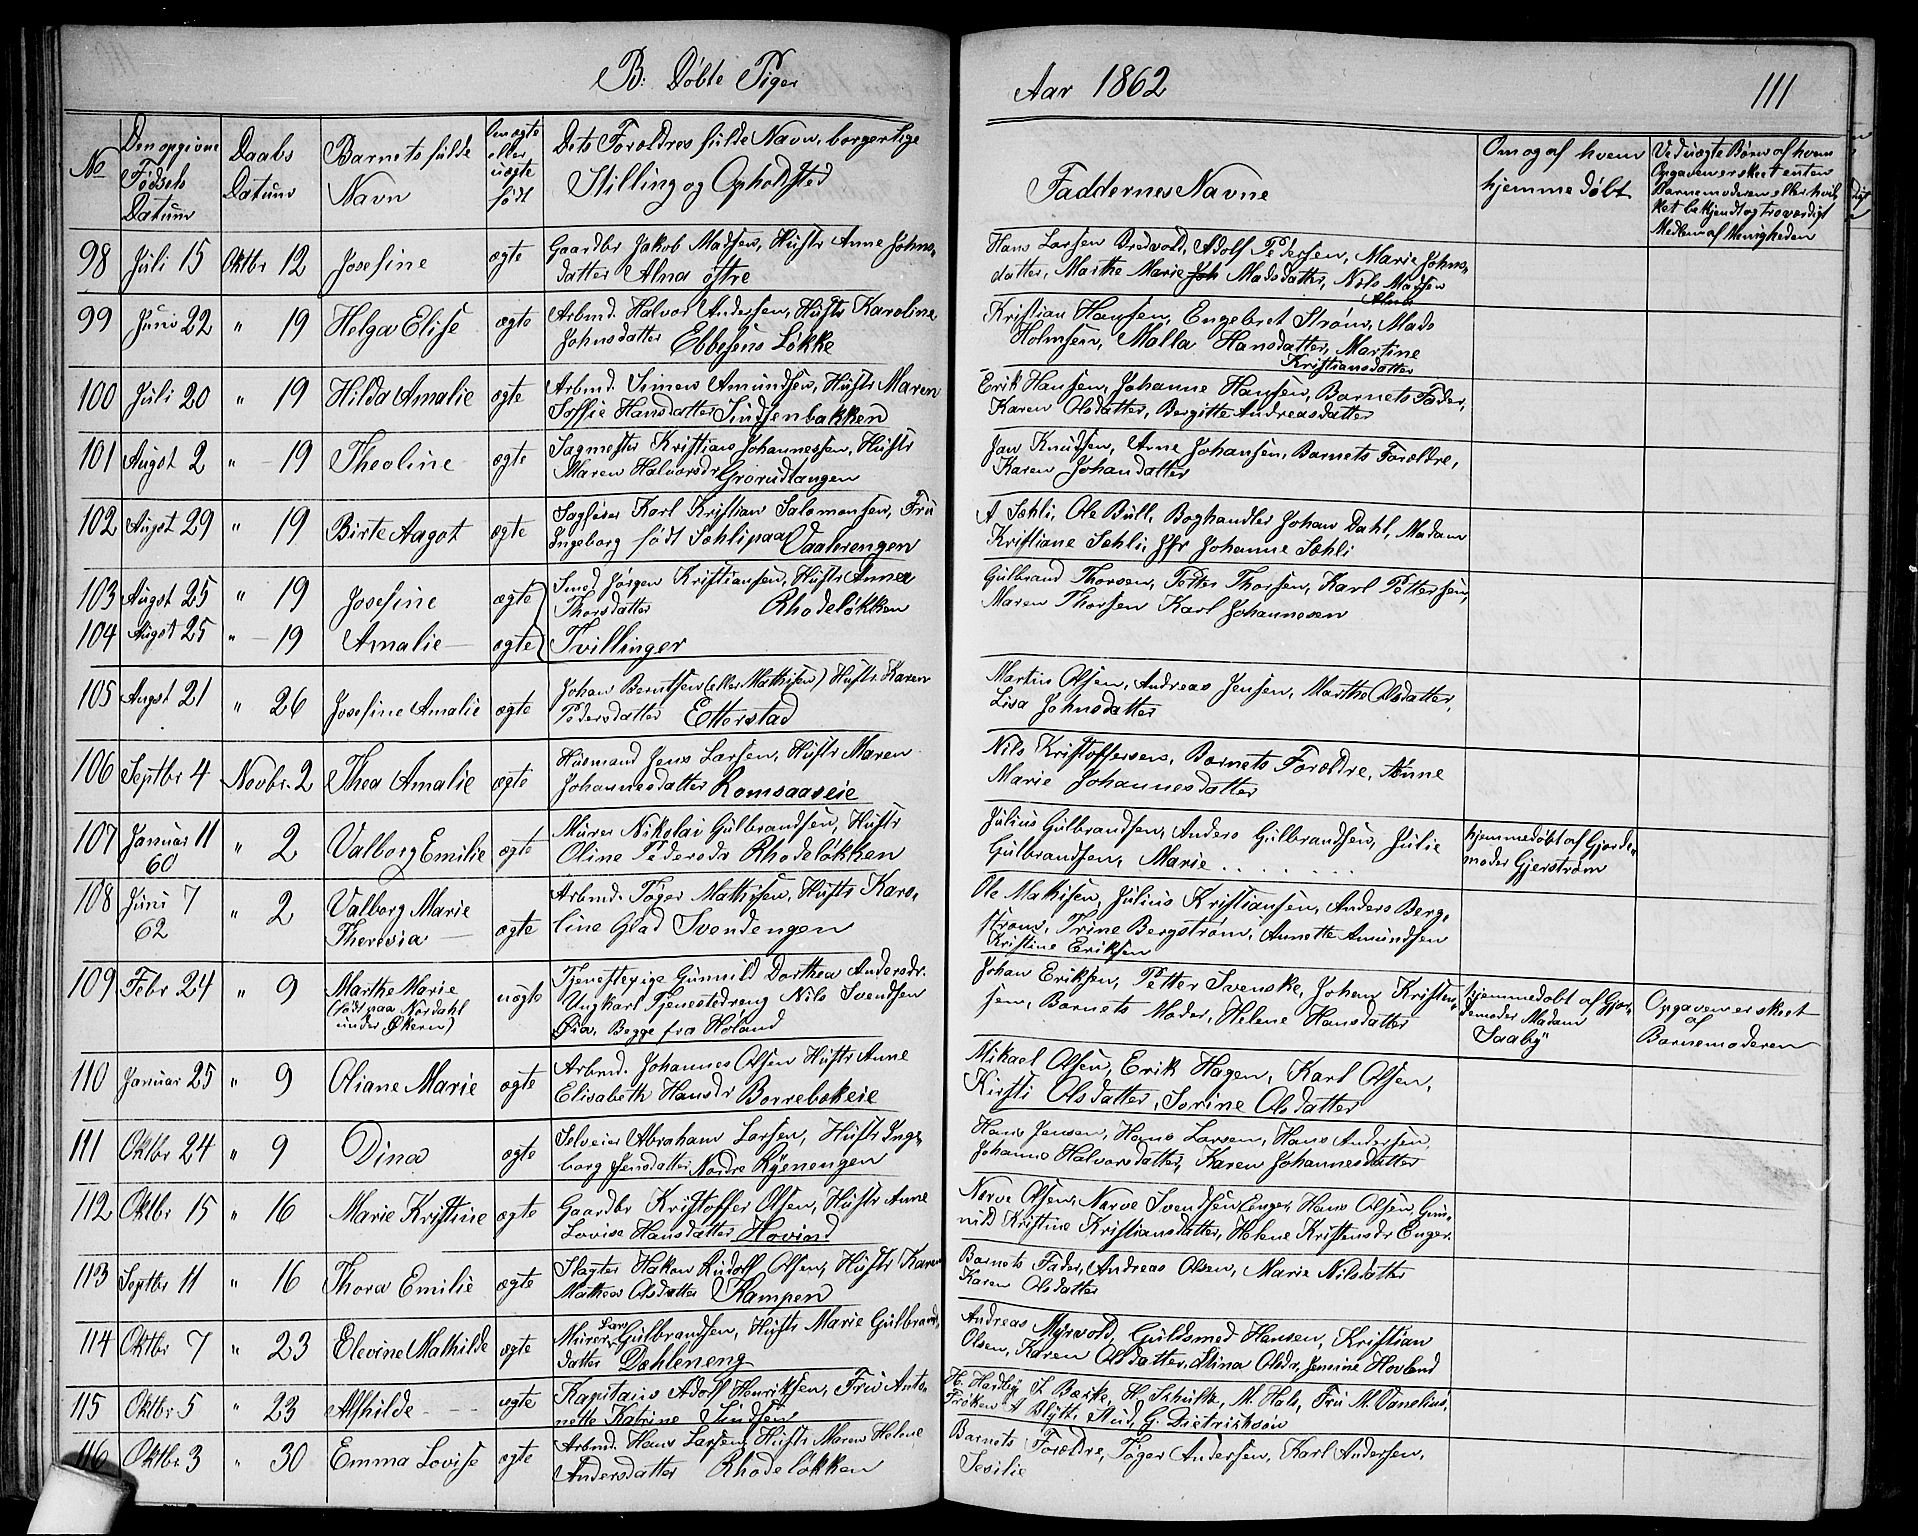 B. Døbte Piger
Aar 1862
111
No
Den opgivne
Fødsels
Datum
Daabs
Datum
Barnets fulde
Navn
Om ægte
eller
uægte
født
Dets Forældres fulde Navn, borgerlige
Stilling og Opholdsted
Faddernes Navne
Om og af hvem
hjemmedøbt
Ved uægte Børn af hvem
Opgaven er skeet enten
Barnemoderen eller hvil
ket bekjendt og troværdigt
Medlem af Menigheden
98 Juli 15 Oktbr 12 Josefine ægte Gaardbr Jakob Madsen, Hustr Anne Johns-
datter Alna østre
Hans Larsen Bredvold, Adolf Pedersen, Marie Johns-
datter, Marthe Marie Joh Madsdatter, Nils Madsen
Alna
99 Juni 22 " 19 Helga Elise ægte Arbmd. Halvor Andersen, Hustr Karoline
Johnsdatter Ebbesens Løkke
Kristian Hansen, Engebret Strøm, Mads
Holmsen, Malla Hansdatter, Martine
Kristiansdatter
100 Juli 20 " 19 Hilda Amalie ægte Arbmd. Simen Amundsen, Hustr Maren
Soffie Hansdatter Lindsenbakken
Erik Hansen, Johanne Hansen, Barnets Fader,
Karen Olsdatter, Bergitte Andreasdatter
101 Augst 2 " 19 Theoline ægte Sagmestr Kristian Johannessen, Hustr
Maren Halvorsdr Grorudtangen
Jan Knudsen, Anne Johansen, Barnets Forældre,
Karen Johandatter
102 Augst 29 " 19 Birte Aagot ægte Sagfører Karl Kristian Salomonsen, Fru
Ingeborg født Sehli paa Vaalerengen
A Sehli, Ole Bull, Boghandler Johan Dahl, Madam
Kristiane Sehli, Jfr Johanne Sehli
103 Augst 25 " 19 Josefine ægte Smed Jørgen Kristiansen, Hustr Anne
Thorsdatter Rhodeløkken
Gulbrand Thorsen, Petter Thorsen, Karl Pettersen,
Maren Thorsen Karl Johannesen
104 Augst 25 " 19 Amalie ægte Tvillinger
105 Augst 21 " 26 Josefine Amalie ægte Johan Berntsen (eller Mathisen) Hustr Karen
Pedersdatter Etterstad
Martin Olsen, Andreas Jensen, Marthe Olsdatter,
Lisa Johnsdatter
106 Septbr 4 Novbr. 2 Thea Amalie ægte Husmand Jens Larsen, Hustr Maren
Johannesdatter Romsaaseie
Nils Kristoffersen, Barnets Forældre, Anne
Marie Johannesdatter
107 Januar 11
60 " 2 Valborg Emilie ægte Murer Nikolai Gulbrandsen, Hustr
Oline Pedersdr Rhodeløkken
Julius Gulbrandsen, Anders Gulbrandsen, Julie
Gulbrandsen, Marie . . . . . . .
hjemmedøbt af Gjorde-
moder Gjerstrøm
108 Juni 7
62 " 2 Valborg Marie
Theresia ægte Arbmd. Tøger Mathisen, Hustr Karo-
line Glad Svendengen
Ole Mathisen, Julius Kristiansen, Anders Berg-
strøm, Trine Bergstrøm, Annette Amundsen
Kristine Eriksen
109 Febr 24 " 9 Marthe Marie
(født paa Nordahl
under Økern) uægte Tjenestepige Gunnild Dorthea Andersdr.
Ungkarl Tjenestedreng Nils Svendsen
Øia, Begge fra Høland
Johan Eriksen, Petter Svenske, Johan Kristen-
sen, Barnets Moder, Helene Hansdatter
hjemmedøbt af Gjor-
demoder Madam
Saaby
Opgaven er skeet
af
Barnemoderen
110 Januar 25 " 9 Oliane Marie ægte Arbmd. Johannes Olsen Hustr Anne
Elisabeth Hansdr Borrebækeie
Mikael Olsen, Erik Hagen, Karl Olsen,
Kirsti Olsdatter, Sørine Olsdatter
111 Oktbr 24 " 9 Dina ægte Selveier Abraham Larsen, Hustr Inge-
borg Jensdatter Nordre Ryenengen
Hans Jensen, Hans Larsen, Hans Andersen
Johanne Halvorsdatter, Karen Johannesdatter
112 Oktbr 15 " 16 Marie Kristine ægte Gaardbr Kristoffer Olsen, Hustr Anne
Lovise Hansdatter Hovind
Narve Olsen, Narve Svendsen Enger, Hans Olsen, Gun-
nild Kristine Kristiansdatter, Helene Kristensdr Enger.
113 Septbr 11 " 16 Thora Emilie ægte Slagter Hakon Rudolf Olsen, Hustr Karen
Mathea Olsdatter Kampen
Barnets Fader, Andreas Olsen, Marie Nilsdatter
Karen Olsdatter
114 Oktbr 7 " 23 Elevine Mathilde ægte Murer Lars Gulbrandsen, Hustr Marie Gulbrand-
datter Dæhleneng
Andreas Myrvold, Guldsmed Hansen, Kristian
Olsen, Karen Olsdatter, Stina Olsdr, Jensine Hovland
115 Oktbr 5 " 23 Alfhilde ægte Kapitain Adolf Henriksen, Fru Anto-
nette Katrine Lindsen
H. Hardby, L Bærke, H. Schulta, M. Hals, Fru M. Vanelius,
Frøken A Blytt, Stud. G. Dietrichson
116 Oktbr 3 " 30 Emma Lovise ægte Arbmd. Hans Larsen, Hustr Maren Helene
Andersdatter Rhodeløkken
Barnets Forældre, Tøger Andersen, Karl Andersen,
Sesilie